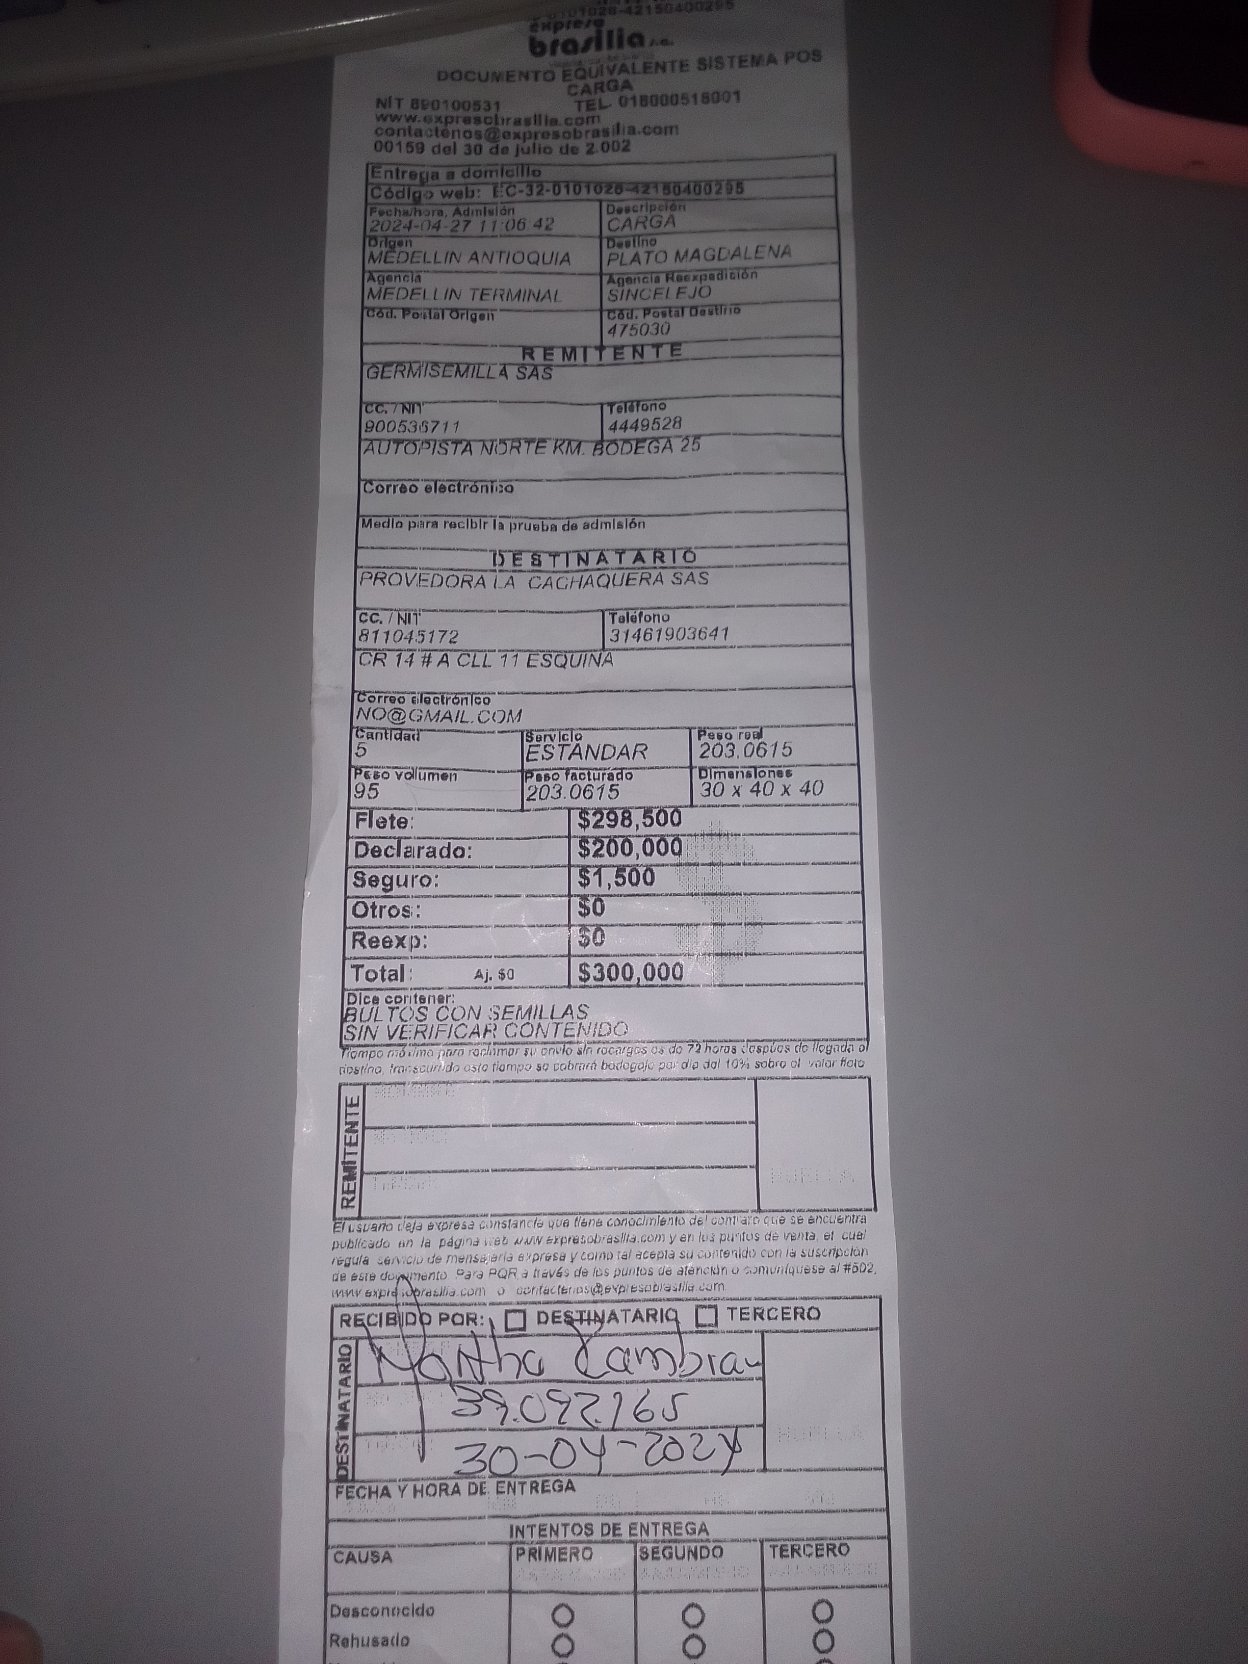 0101028-42150400295
expreso
brasilia s.a.
DOCUMENTO EQUIVALENTE SISTEMA POS
CARGA
NIT 890100531 TEL. 018000518001
www.expresobrasilia.com
contactenos@expresobrasilia.com
00159 del 30 de julio de 2.002
Entrega a domicilio
Código web: EC-32-0101028-42150400295
Fecha/hora, Admisión Descripción
2024-04-27 11:06:42 CARGA
Origen Destino
MEDELLIN ANTIOQUIA PLATO MAGDALENA
Agencia Agencia Reexpedición
MEDELLIN TERMINAL SINCELEJO
Cód. Postal Origen Cód. Postal Destino
475030
REMITENTE
GERMISEMILLA SAS
CC. / NIT Teléfono
900536711 4449528
AUTOPISTA NORTE KM. BODEGA 25
Correo electrónico
Medio para recibir la prueba de admisión
DESTINATARIO
PROVEDORA LA CACHAQUERA SAS
CC. / NIT Teléfono
811045172 31461903641
CR 14 # A CLL 11 ESQUINA
Correo electrónico
NO@GMAIL.COM
Cantidad Servicio Peso real
5 ESTÁNDAR 203.0615
Peso volumen Peso facturado Dimensiones
95 203.0615 30 x 40 x 40
Flete: $298,500
Declarado: $200,000
Seguro: $1,500
Otros: $0
Reexp: $0
Total: Aj. $0 $300,000
Dice contener:
BULTOS CON SEMILLAS
SIN VERIFICAR CONTENIDO
Tiempo máximo para reclamar su envío sin recargos es de 72 horas después de llegada al
destino, transcurrido este tiempo se cobrará bodegaje por día del 10% sobre el valor flete
REMITENTE
El usuario deja expresa constancia que tiene conocimiento del contrato que se encuentra
publicado en la página web www.expresobrasilia.com y en los puntos de venta, el cual
regula servicio de mensajería expresa y como tal acepta su contenido con la suscripción
de este documento. Para PQR a través de los puntos de atención o comuníquese al #502,
www.expresobrasilia.com o contactenos@expresobrasilia.com
RECIBIDO POR: DESTINATARIO TERCERO
DESTINATARIO
Martha
39.092.165
30-04-2024
FECHA Y HORA DE ENTREGA
INTENTOS DE ENTREGA
CAUSA PRIMERO SEGUNDO TERCERO
Desconocido
Rehusado